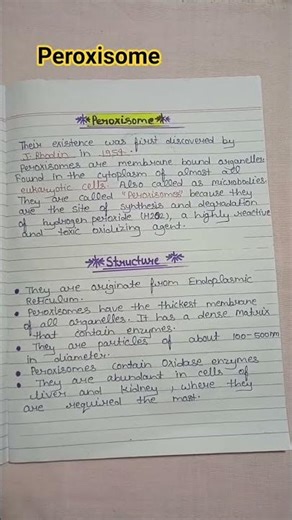 Peroxisome
Peroxisome
Their existence was first discovered by
J. Rhodin in 1954.
Peroxisomes are membrane bound organelles
Found in the cytoplasm of almost all
eukaryotic cells. Also called as microbodies
They are called "Peroxisomes" because they
are the site of synthesis and degradation
of hydrogen peroxide (H2O2), a highly reactive
and toxic oxidizing agent.
Structure
• They are originate from Endoplasmic
Reticulum.
• Peroxisomes have the thickest membrane
of all organelles. It has a dense matrix
that contain enzymes.
• They are particles of about 100-500nm
in diameter.
• Peroxisomes contain Oxidase enzymes
• They are abundant in cells of
liver and kidney, where they
are required the most.